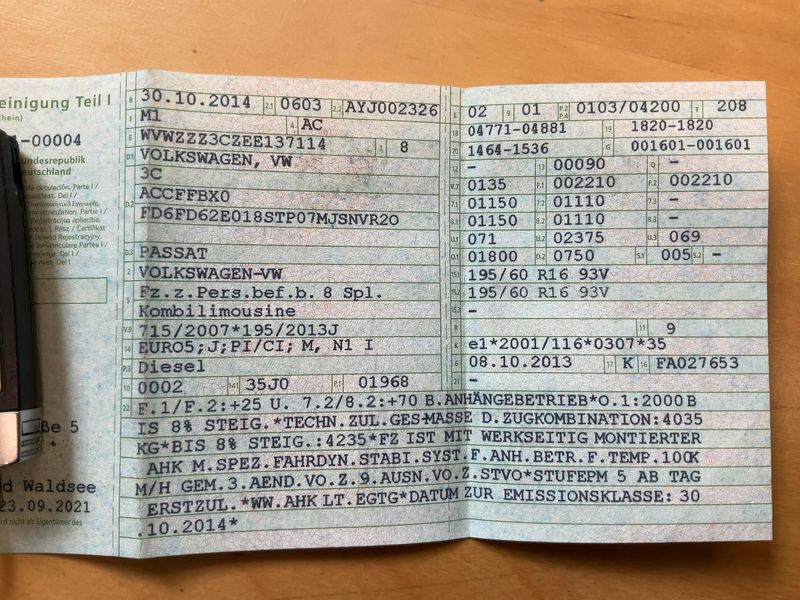 einigung Teil I
-00004
undesrepublik
eutschland
ße 5
d Waldsee
23.09.2021
B 30.10.2014 2.1 0603 2.2 AYJ002326
J M1 4 AC
E WVWZZZ3CZEE137114 3 8
D.1 VOLKSWAGEN, VW
3C
D.2 ACCFFBX0
FD6FD62E018STP07MJSNVR2O
D.3 PASSAT
2 VOLKSWAGEN-VW
5 Fz.z.Pers.bef.b. 8 Spl.
Kombilimousine
V.9 715/2007*195/2013J
14 EURO5;J;PI/CI; M, N1 I
P.3 Diesel
10 0002 14.1 35J0 P.1 01968
L 02 9 01 P.2 P.4 0103/04200 T 208
18 04771-04881 19 1820-1820
20 1464-1536 G 001601-001601
12 – 13 00090 Q –
V.7 0135 F.1 002210 F.2 002210
7.1 01150 7.2 01110 7.3 –
8.1 01150 8.2 01110 8.3 –
U.1 071 U.2 02375 U.3 069
O.1 01800 O.2 0750 S.1 005 S.2 –
15.1 195/60 R16 93V
15.2 195/60 R16 93V
15.3 –
R 11 9
K e1*2001/116*0307*35
6 08.10.2013 17 K 16 FA027653
21 –
22 F.1/F.2:+25 U. 7.2/8.2:+70 B.ANHÄNGEBETRIEB*O.1:2000 B
IS 8% STEIG.*TECHN.ZUL.GES-MASSE D.ZUGKOMBINATION:4035
KG*BIS 8% STEIG.:4235*FZ IST MIT WERKSEITIG MONTIERTER
AHK M.SPEZ.FAHRDYN.STABI.SYST.F.ANH.BETR.F.TEMP.100K
M/H GEM.3.AEND.VO.Z.9.AUSN.VO.Z.STVO*STUFEPM 5 AB TAG
ERSTZUL.*WW.AHK LT.EGTG*DATUM ZUR EMISSIONSKLASSE: 30
.10.2014*